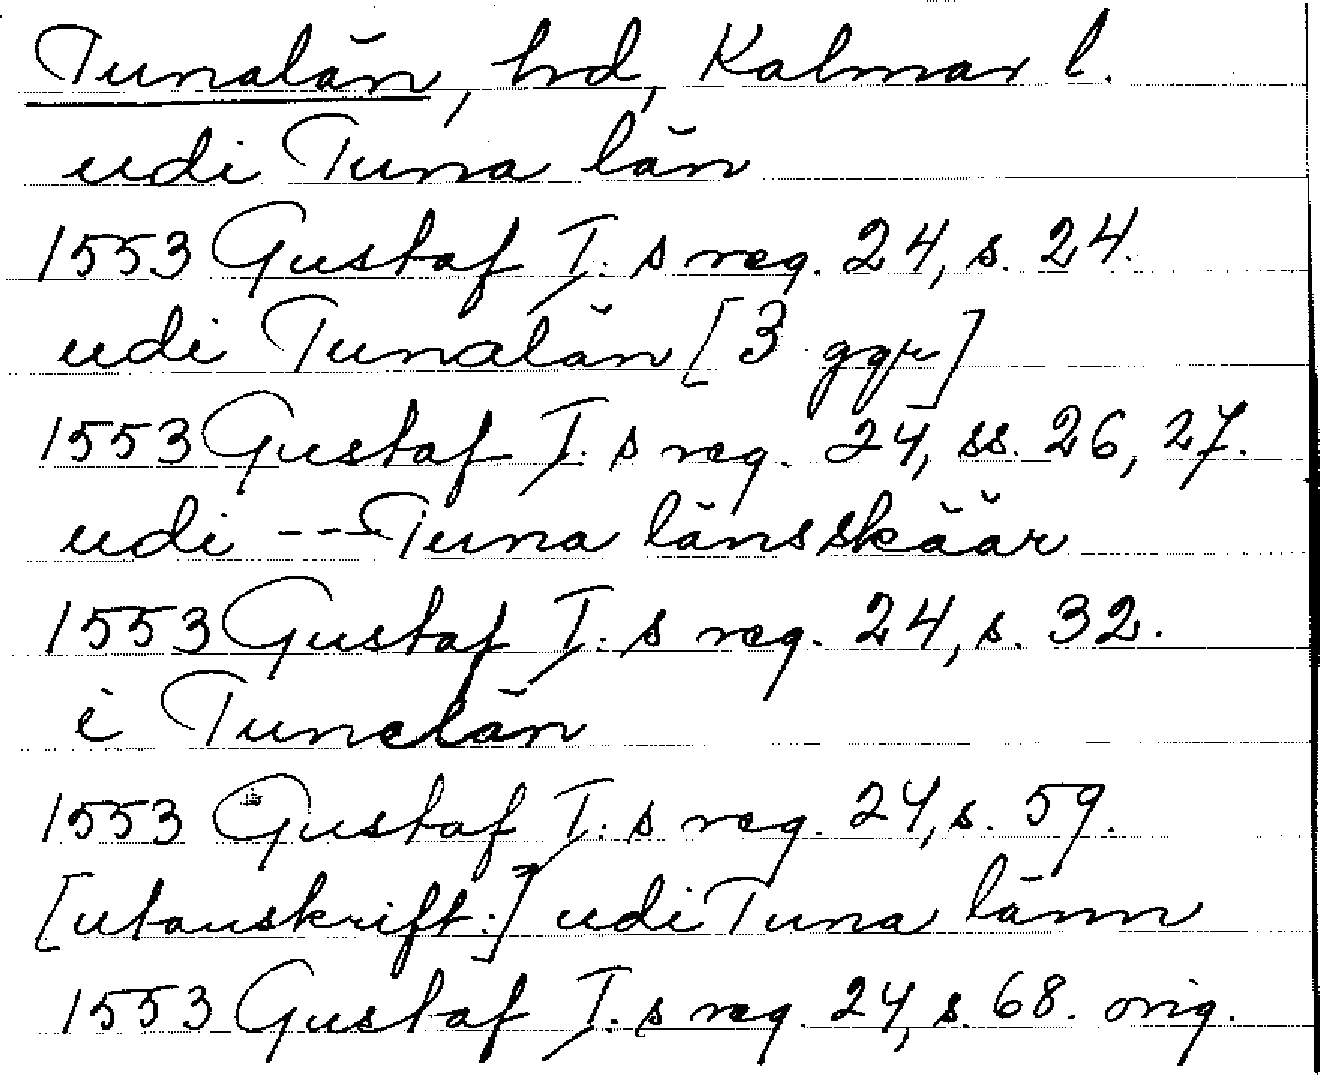 Tunalän, hd, Kalmar l.
udi Tuna län
1553 Gustaf I:s reg. 24, s. 24.
udi Tunalän [3 ggr]
1553 Gustaf I:s reg. 24, ss. 26, 27.
udi --- Tuna länsskäär
1553 Gustaf I:s reg. 24, s. 32.
i Tunelän
1553 Gustaf I:s reg. 24, s. 59.
[utanskrift:] udi Tuna länn
1553 Gustaf I:s reg. 24, s. 68. orig.